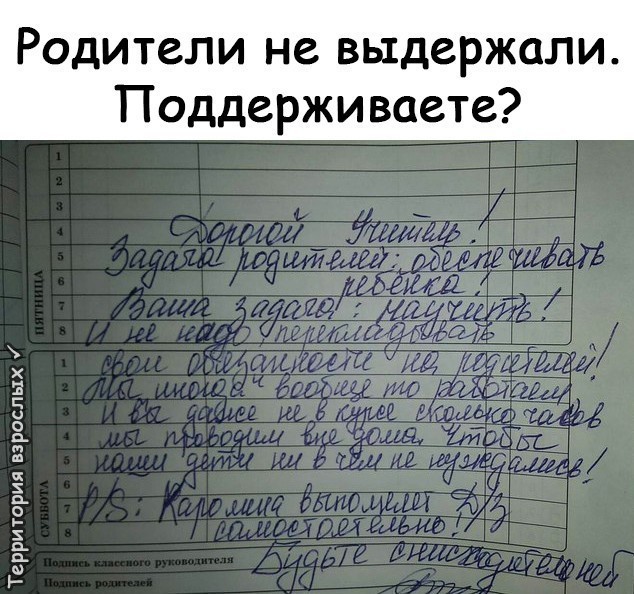 Родители не выдержали.
Поддерживаете?
1
2
3
4
5
6
7
8
ПЯТНИЦА
Дорогой Учитель!
Задача родителей: обеспечивать
ребёнка!
Ваша задача: научить!
И не надо перекладывать
свои обязанности на родителей!
Мы иногда вообще то работаем
И вы даже не в курсе сколько часов
мы проводим вне дома, чтобы
наши дети ни в чём не нуждались!
P/S: Каролина выполняет Д/З
самостоятельно!
Будьте снисходительней
1
2
3
4
5
6
7
8
СУББОТА
Подпись классного руководителя
Подпись родителей
Территория взрослых ✓